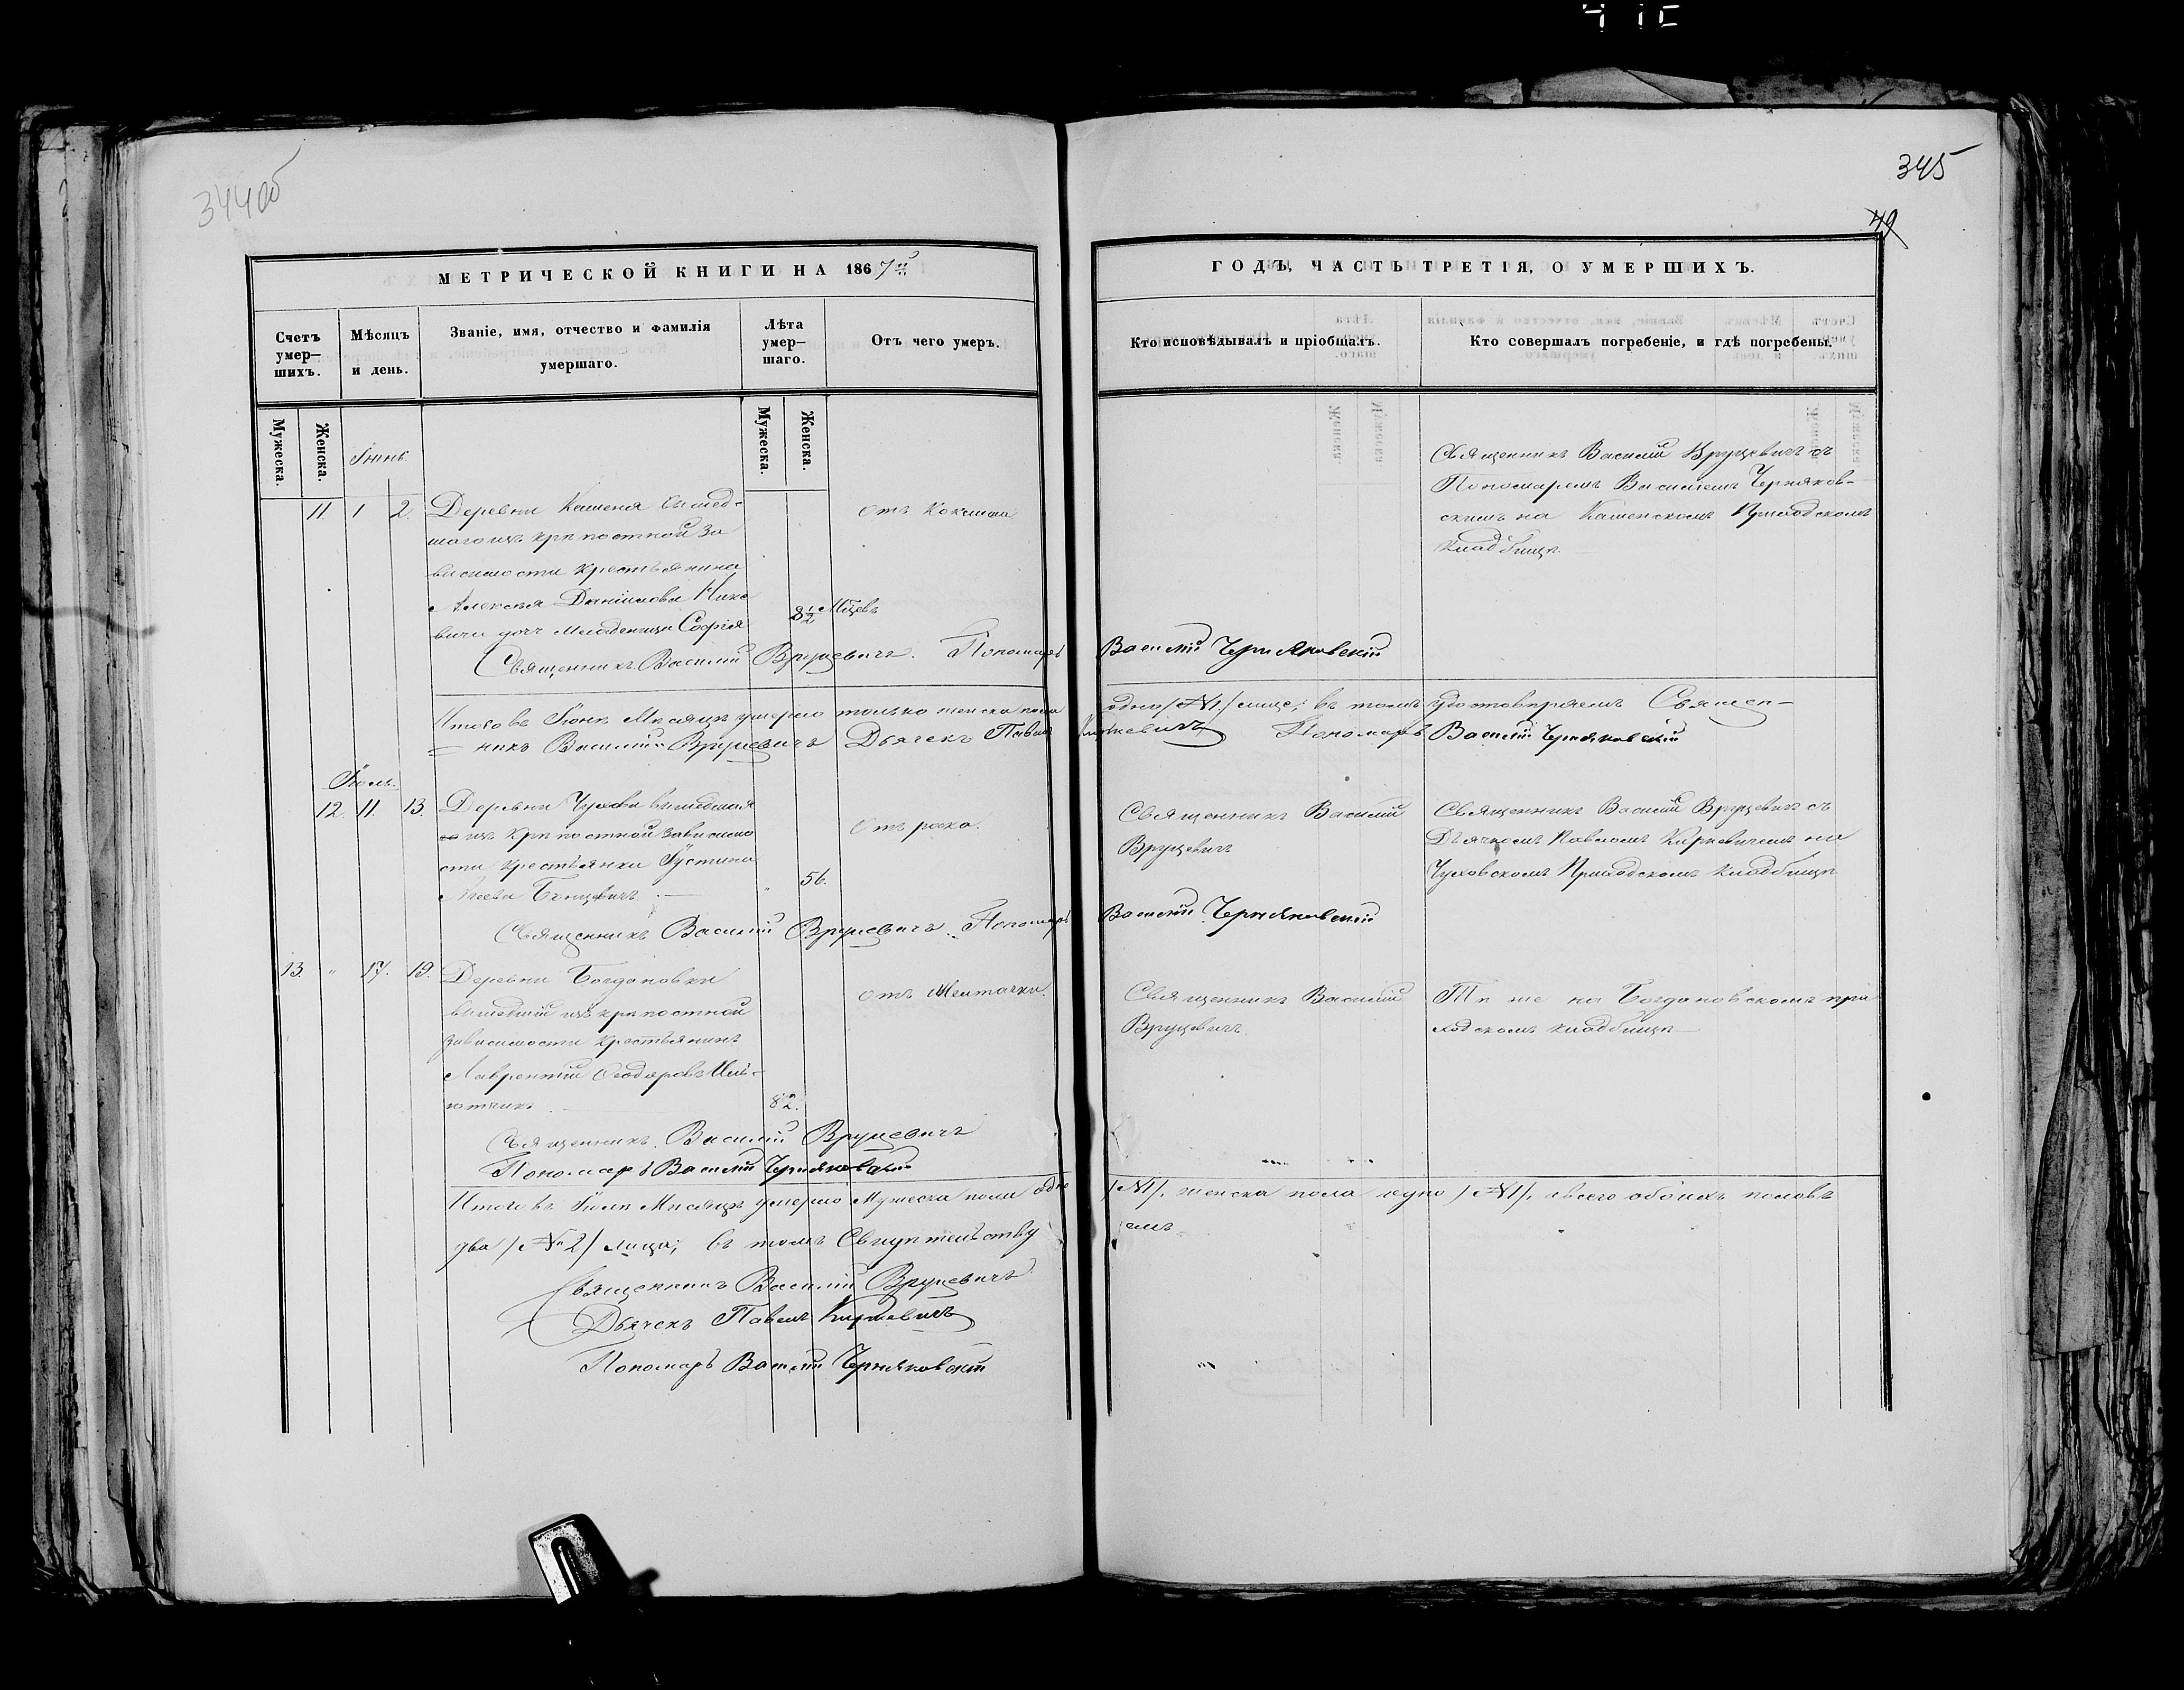 344 об
345
49
МЕТРИЧЕСКОЙ КНИГИ НА 1867й
ГОДЪ, ЧАСТЬ ТРЕТІЯ, О УМЕРШИХЪ.
Счетъ умер–шихъ.
Мѣсяцъ и день.
Званіе, имя, отчество и фамилія умершаго.
Лѣта умер–шаго.
Отъ чего умеръ.
Кто исповѣдывалъ и пріобщалъ.
Кто совершалъ погребеніе, и гдѣ погребены.
Мужеска.
Женска.
Мужеска.
Женска.
Іюнь
11. 1 2.
Деревни Каменя вышед-
шаго изъ крѣпостной за
висимости крестьянина
Алексѣя Даніилова
дочь младеница Софія
8½ Мцевъ
отъ Коклюша
Священникъ Василій Вруцевичъ съ
Пономаремъ Василіемъ Черняков-
скимъ на Каменскомъ Приходскомъ
кладбищѣ.
Священникъ Василий Вруцевичъ. Пономарь Василій Черняковскій
Итого въ Іюнѣ Мѣсяцѣ умерло только женска пола одно /№1/ лице; въ томъ удостовѣряемъ Священ-
никъ Василий Вруцевичъ Дьячекъ Павелъ Киркевичъ Пономарь Василій Черняковскій
Іюль.
12. 11. 13.
Деревни Чухова вышедшая
изъ крѣпостной зависимо
сти крестьянка Іустина
56.
Отъ рака.
Священникъ Василій
Вруцевичъ
Священникъ Василій Вруцевичъ съ
Дьячкомъ Павломъ Киркевичемъ на
Чуховскомъ Приходскомъ кладбищѣ
Священникъ Василий Вруцевичъ. Пономарь Василій Черняковскій
13. " 17. 19.
Деревни Богдановки
вышедшій изъ крѣпостной
зависимости крестьянинъ
Лаврентій Ѳеодоровъ
82.
отъ Желтачки.
Священникъ Василій
Вруцевичъ.
Тѣ же на Богдановскомъ при
ходскомъ кладбищѣ
Священникъ Василий Вруцевичъ
Пономарь Василій Черняковскій
Итого въ Іюлѣ Мѣсяцѣ умерло Мужеска пола одно /№1/, женска пола одно /№1/, а всего обоихъ половъ
два /№ 2/ лица; въ томъ Свидѣтельству емъ
Священникъ Василій Вруцевичъ
Дьячекъ Павелъ Киркевичъ
Пономарь Василій Черняковскій